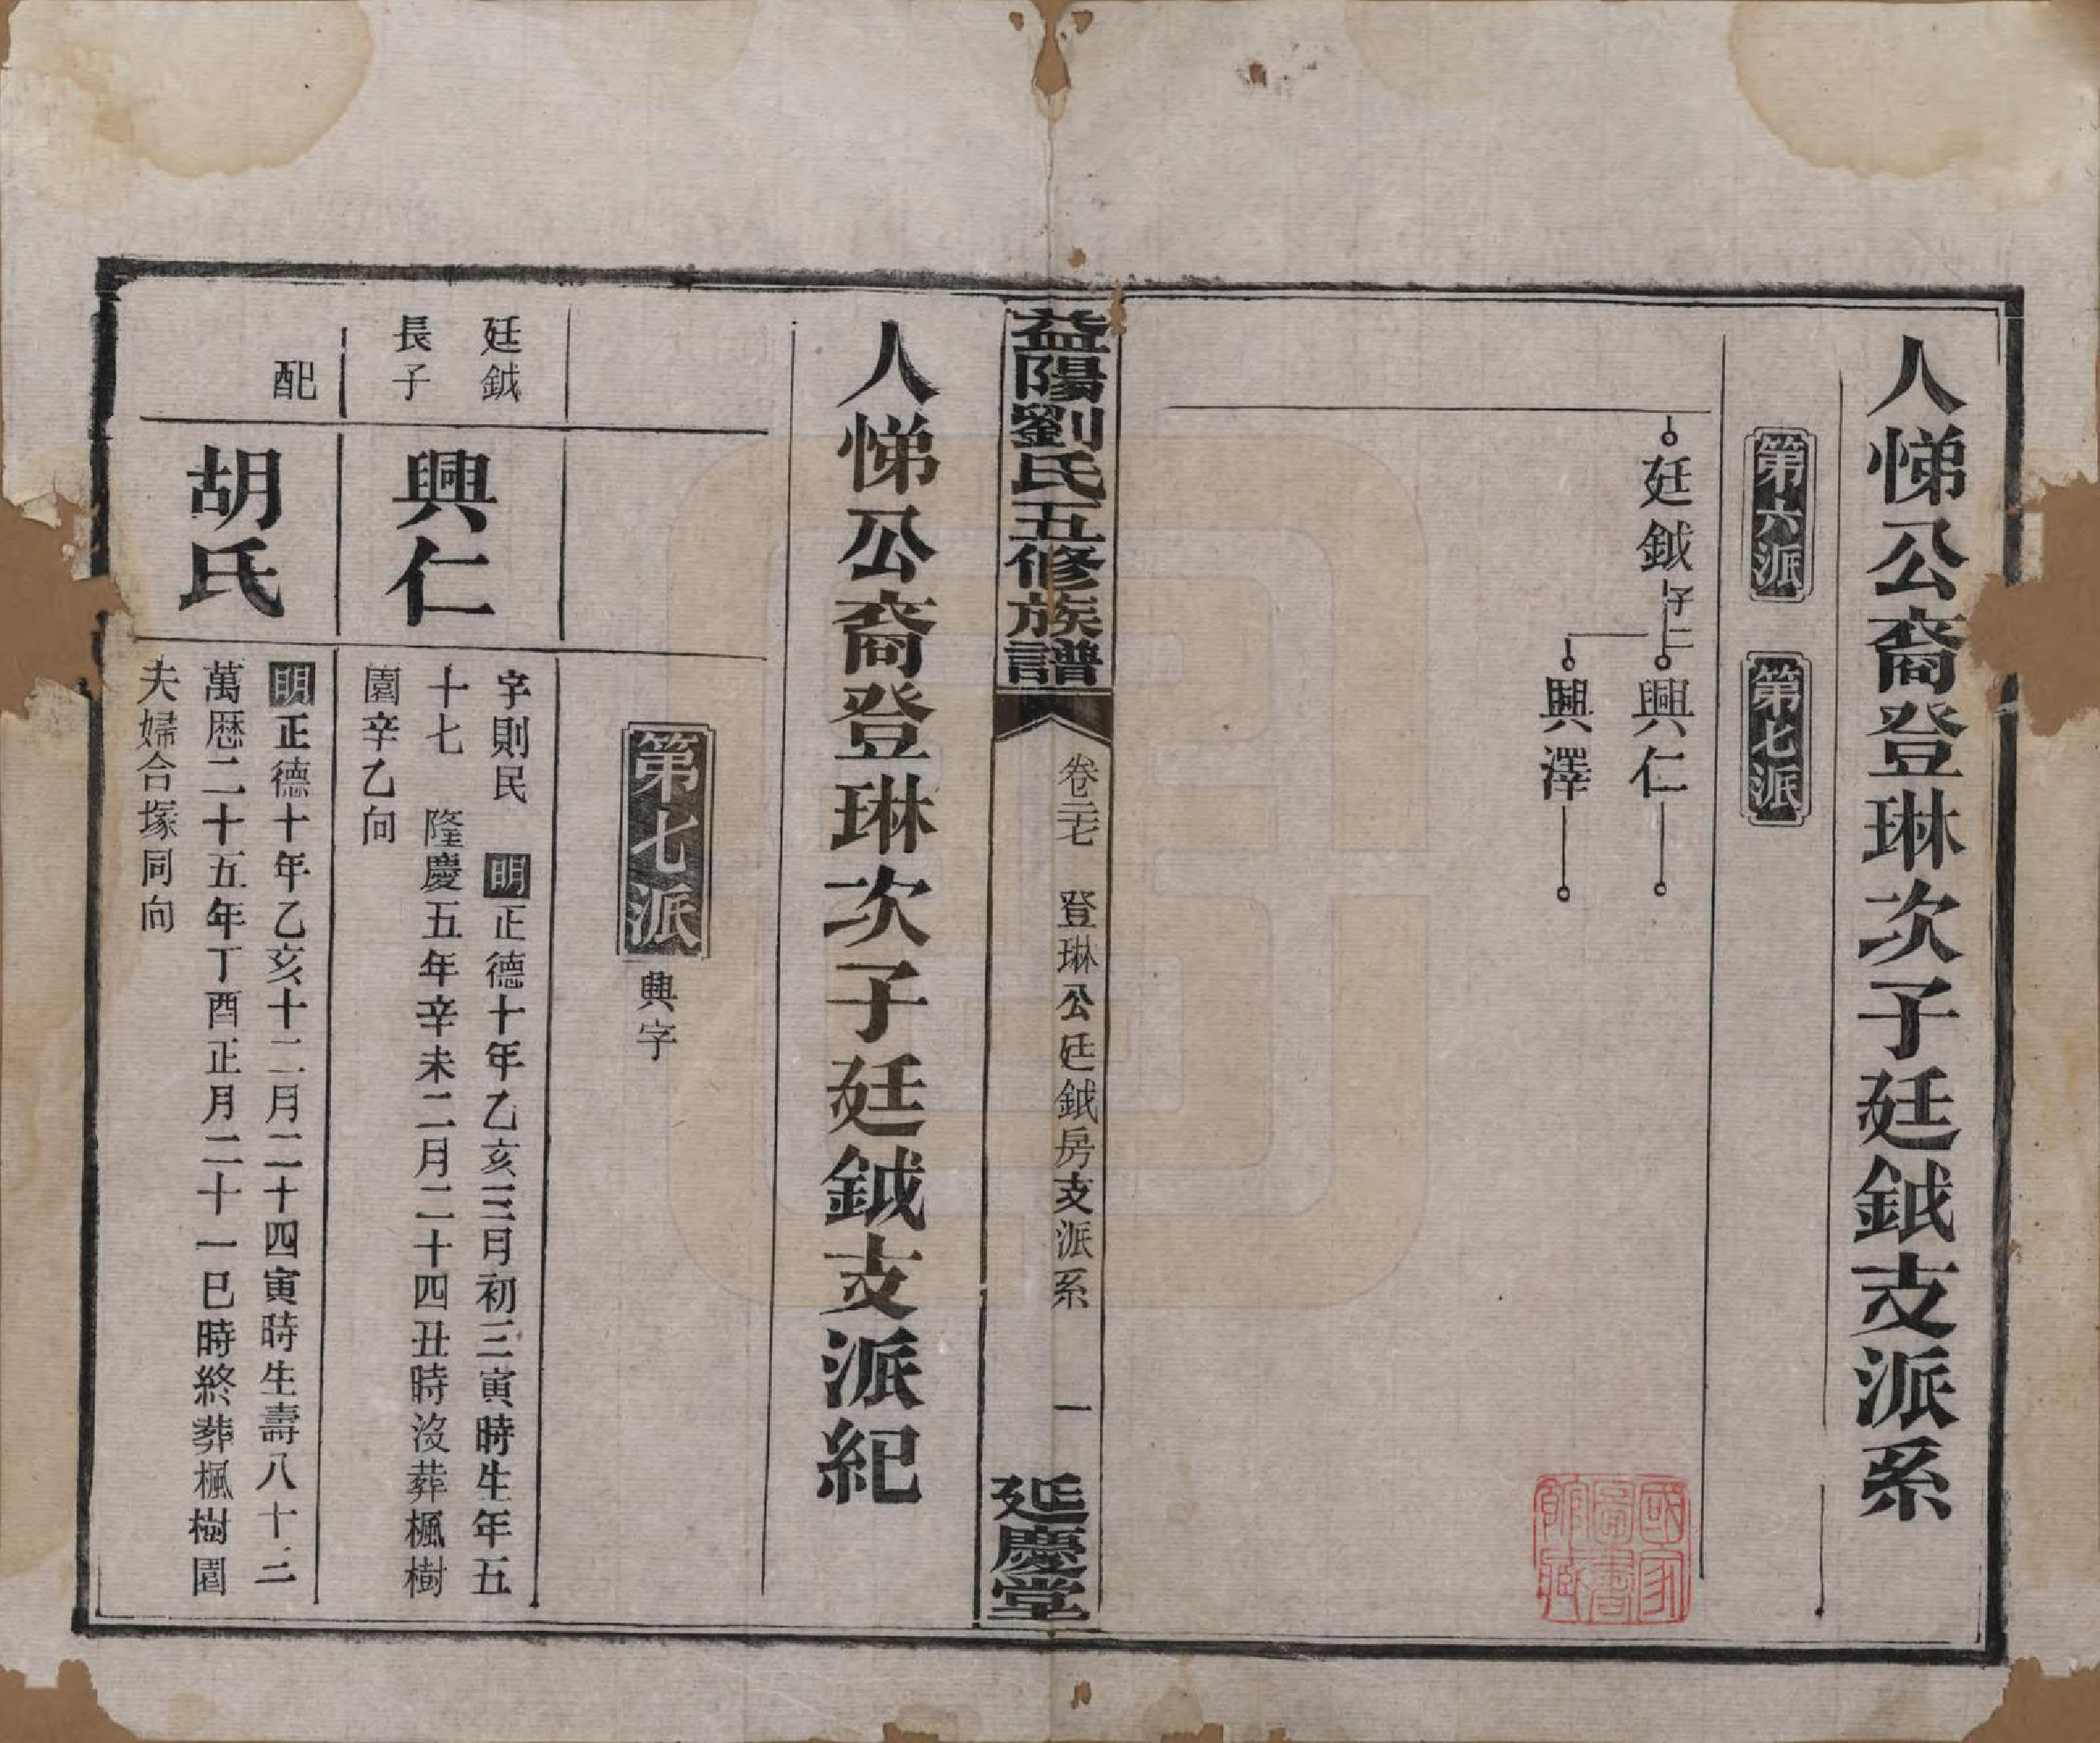 人悌公裔登琳次子廷鉞支派系
第六派
第七派
廷鉞
子二
興仁
興澤
國家圖書館藏
益陽劉氏五修族譜
卷二七
登琳公廷鉞房支派系
一
延慶堂
人悌公裔登琳次子廷鉞支派紀
第七派
興字
廷鉞
長子
興仁
字則民 明正德十年乙亥三月初三寅時生年五
十七 隆慶五年辛未二月二十四丑時沒葬楓樹
園辛乙向
配
胡氏
明正德十年乙亥十二月二十四寅時生壽八十三
萬歷二十五年丁酉正月二十一巳時終葬楓樹園
夫婦合塚同向